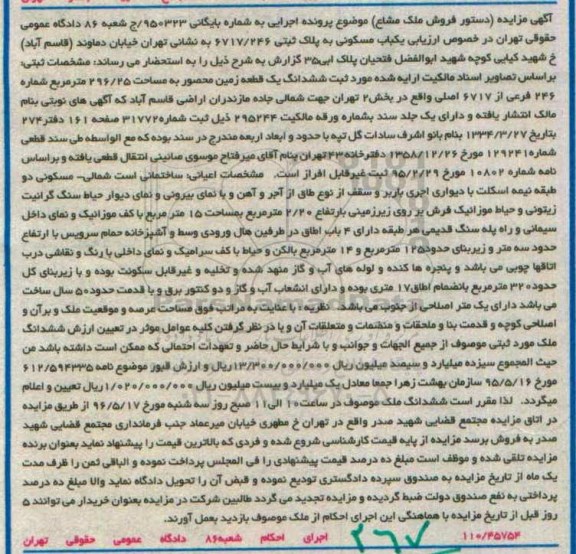 آگهی مزایده (دستور فروش ملک مشاع) موضوع پرونده اجرایی به شماره بایگانی ۹۵۰۳۲۳/ج شعبه ۸۶ دادگاه عمومی
حقوقی تهران در خصوص ارزیابی یکباب مسکونی به پلاک ثبتی ۶۷۱۷/۲۴۶ به نشانی تهران خیابان دماوند (قاسم آباد)
خ شهید کیایی کوچه شهید ابوالفضل فتحیان پلاک آبی۳۵ گزارش به شرح ذیل را به استحضار می رساند: مشخصات ثبتی:
براساس تصاویر اسناد مالکیت ارایه شده مورد ثبت ششدانگ یک قطعه زمین محصور به مساحت ۲۹۶/۲۵ مترمربع شماره
۲۴۶ فرعی از ۶۷۱۷ اصلی واقع در بخش۲ تهران جهت شمالی جاده مازندران اراضی قاسم آباد که آگهی های نوبتی بنام
مالک انتشار یافته و دارای یک جلد سند بشماره ورقه مالکیت ۲۹۵۲۴۴ ذیل ثبت شماره۳۱۷۷۲ صفحه ۱۶۱ دفتر۲۷۴
بتاریخ ۱۳۳۴/۳/۲۷ بنام بانو اشرف سادات گل تپه با حدود و ابعاد اربعه مندرج در سند بوده که مع الواسطه طی سند قطعی
شماره۱۲۹۲۴۱ مورخ ۱۳۵۸/۱۲/۲۶ دفترخانه۴۳ تهران بنام آقای میرفتاح موسوی صائینی انتقال قطعی یافته و براساس
نامه شماره ۱۰۸۰۲ مورخ ۹۵/۲/۲۹ ثبت غیرقابل افراز است. مشخصات اعیانی: ساختمانی است شمالی- مسکونی دو
طبقه نیمه اسکلت با دیواری اجری باربر و سقف از نوع طاق از آجر و آهن و با نمای بیرونی و نمای دیوار حیاط سنگ گرانیت
زیتونی و حیاط موزائیک فرش بر روی زیرزمینی بارتفاع ۲/۲۰ مترمربع بمساحت ۱۵ متر مربع با کف موزائیک و نمای داخل
سیمانی و راه پله سنگ قدیمی هر طبقه دارای ۴ باب اطاق در طرفین هال ورودی وسط و آشپزخانه حمام سرویس با ارتفاع
حدود سه متر و زیربنای حدود۱۲۵ مترمربع و ۱۴ مترمربع بالکن و حیاط با کف سرامیک و نمای داخلی با رنگ و نقاشی درب
اتاقها چوبی می باشد و پنجره ها کنده و لوله های آب و گاز منهد شده و تخلیه و غیرقابل سکونت بوده و با زیربنای کل
حدود۳۲۰ مترمربع بانضمام اطاق۱۷ متری بوده و دارای انشعاب آب و گاز و دو کنتور برق و با قدمت حدود۵۰ سال ساخت
می باشد دارای یک متر اصلاحی از جنوب می باشد. نظریه: با عنایت به مراتب فوق مساحت عرصه و موقعیت ملک و برآن و
اصلاحی کوچه و قدمت بنا و ملحقات و منظمات و متعلقات آن و با در نظر گرفتن کلیه عوامل موثر در تعیین ارزش ششدانگ
ملک مورد ثبتی موصوف از جمیع الجهات و جوانب و با شرایط حال حاضر و تعهدات احتمالی که ممکن است داشته باشد من
حیث المجموع سیزده میلیارد و سیصد میلیون ریال ۱۳/۳۰۰/۰۰۰/۰۰۰ریال و ارزش قبور موضوع نامه ۶۱۲/۵۹۴۳۳۵
مورخ ۹۵/۵/۱۶ سازمان بهشت زهرا جمعا معادل یک میلیارد و بیست میلیون ریال ۱/۰۲۰/۰۰۰/۰۰۰ریال تعیین و اعلام
میگردد. لذا مقرر است ششدانگ ملک موصوف در ساعت۱۰ الی۱۱ صبح روز سه شنبه مورخ ۹۶/۵/۱۷ از طریق مزایده
در اتاق مزایده مجتمع قضایی شهید صدر واقع در تهران خ مطهری خیابان میرعماد جنب فرمانداری مجتمع قضایی شهید
صدر به فروش برسد مزایده از پایه قیمت کارشناسی شروع شده و فردی که بالاترین قیمت را پیشنهاد نماید بعنوان برنده
مزایده تلقی شده و موظف است مبلغ ده درصد قیمت پیشنهادی را فی المجلس پرداخت نموده و الباقی ثمن را ظرف مدت
یک ماه از تاریخ مزایده به صندوق سپرده دادگستری تودیع نموده و قبض آن را تحویل دادگاه نماید والا مبلغ ده درصد
پرداختی به نفع صندوق دولت ضبط گردیده و مزایده تجدید می گردد طالبین شرکت در مزایده بعنوان خریدار می توانند ۵
روز قبل از تاریخ مزایده با هماهنگی این اجرای احکام از ملک موصوف بازدید بعمل آورند.
۱۱۰/۴۵۷۵۴ ۲۶۷ اجرای احکام شعبه۸۶ دادگاه عمومی حقوقی تهران